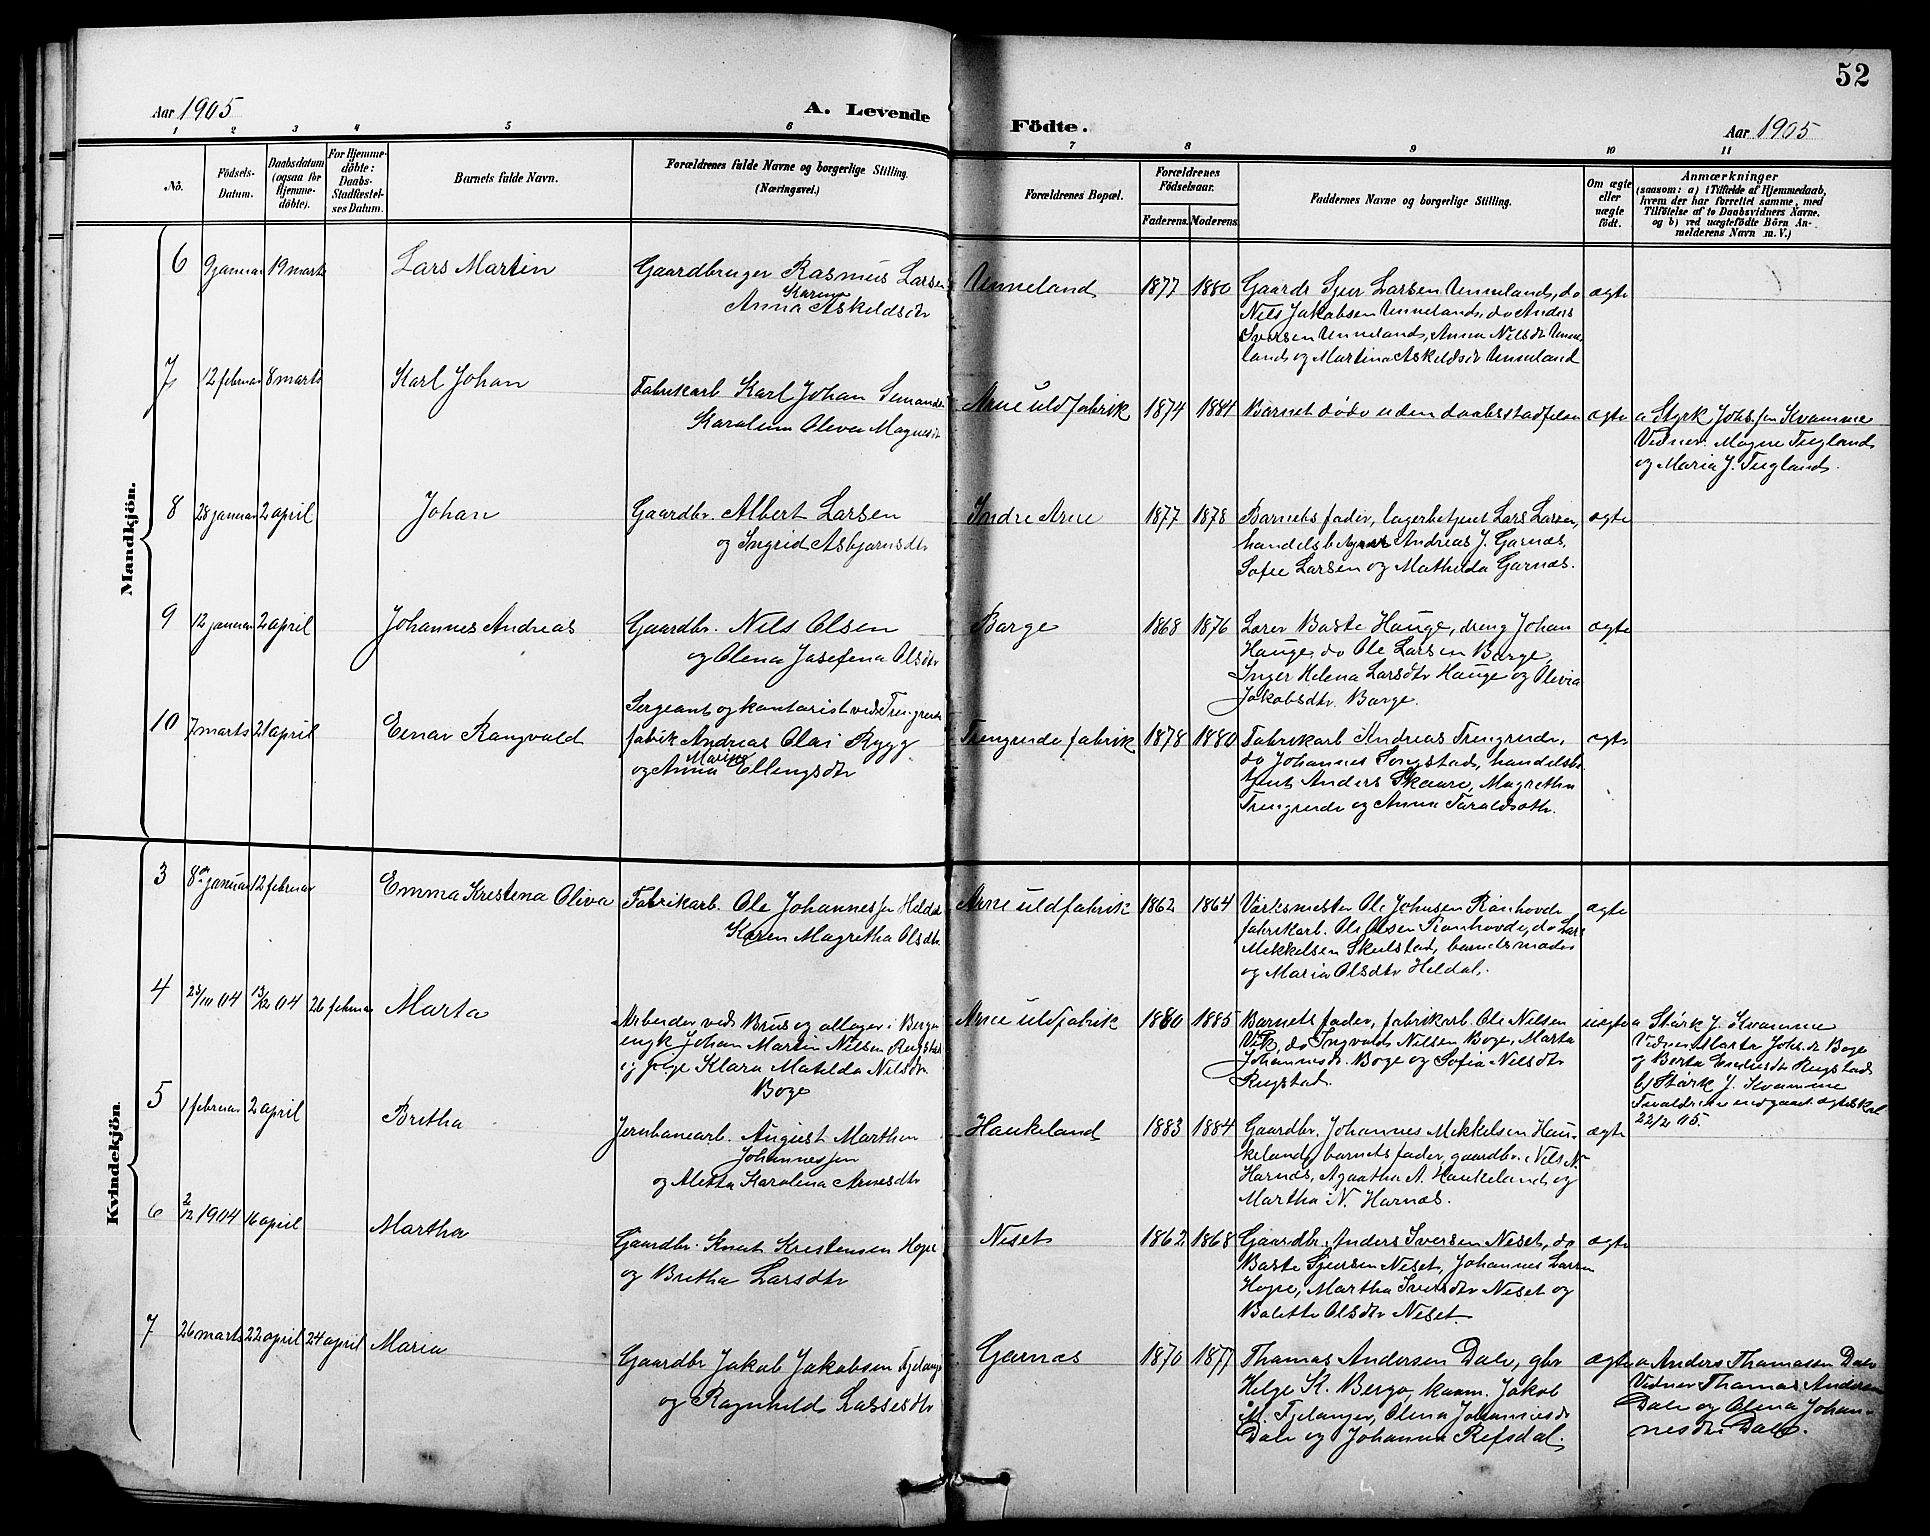 52
Aar 1905
A. Levende
Födte.
Aar 1905
1 2 3 4 5 6 7 8 9 10 11
No.
Födsels-
Datum.
Daabsdatum
(ogsaa for
Hjemme-
döbte).
For Hjemme-
döbte:
Daabs-
Stadfæstel-
ses Datum.
Barnets fulde Navn.
Forældrenes fulde Navne og borgerlige Stilling.
(Næringsvei.)
Forældrenes Bopæl.
Forældrenes
Födselsaar.
Faderens.
Moderens.
Faddernes Navne og borgerlige Stilling.
Om ægte
eller
uægte
födt.
Anmærkninger
(saasom: a) i Tilfælde af Hjemmedaab,
hvem der har forrettet samme, med
Tilföielse af to Daabsvidners Navne,
og b) ved uægtefödte Börn An-
melderens Navn m. V.)
Mandkjön.
6 9 januar 19 marts Lars Martin
Gaardbruger Rasmus Larsen
Karina
Anna Askeldsdtr
Unneland 1877 1880
Gaardr Sjur Larsen Unneland, do
Nils Jakobsen Unneland, do Anders
Iversen Unneland, Anna Nilsdtr Unne-
land og Martina Askeldsdtr Unneland
ægte
7 12 februar 8 marts Karl Johan
Fabrikarb Karl Johan
Karolina Oliva Magnesdtr
Arne uldfabrik 1874 1884
Barnet döde uden daabsstadfestn
ægte
a Styrk Johs.sen Kvamme
Vidner: Magne Teigland
og Maria J. Teigland.
8 28 januar 2 april Johan
Gaardbr. Albert Larsen
og Ingrid Asbjørnsdtr
Indre Arne 1877 1878
Barnets fader, lagerbetjent Lars Larsen,
handelsbetjent Andreas J. Garnæs,
Sofie Larsen og Mathilda Garnæs.
ægte
9 12 januar 2 april Johannes Andreas
Gaardbr. Nils Olsen
og Olena Josefena Olsdtr
Borge 1868 1876
Lærer Baste Hauge, dreng Johan
Hauge, do Ole Larsen Borge,
Inger Helena Larsdtr Hauge og Olivia
Jakobsdtr Borge.
ægte
10 7 marts 21 april Einar Rangvald
Sergeant og kontorist ved Trengreide
fabrik Andreas Olai Rygg
Marine
og Anna Ellingsdtr
Trengreide fabrik 1878 1880
Fabrikarb Andreas Trengreide,
do Johannes Songstad, handelsbe-
tjent Anders Skaare, Magretha
Trengreide og Anna Taraldsdtr.
ægte
Kvindekjön.
3 8de januar 12 februar Emma Kristena Oliva
Fabrikarb. Ole Johannessen Heldal
Karen Magretha Olsdtr
Arne uldfabrik 1862 1864
Værksmester Ole Johnsen Rönhovde
fabrikarb. Ole Olsen Rönhovde, do Lars
Mikkelsen Skulstad, barnets moder
og Maria Olsdtr Heldal.
ægte
4 23/10 04 13/12 04 26 februar Marta
Arbeider ved Brus og ollager i Bergen
ungk Johan Martin Nilsen Rugstad
og pige Klara Matilda Nilsdtr
Boge
Arne uldfabrik 1880 1885
Barnets fader, fabrikarb. Ole Nilsen
Vik, do Ingvald Nilsen Boge, Marta
Johannesdtr Boge og Sofia Nilsdtr
Rugstad.
uægte
a Stårk J. Kvamme
Vidner Marta Johs.dr Boge
og Berta Rugstad
b) Stårk J. Kvamme
Foreldrene indgaaet ægteskab
22/2 05.
5 1 februar 2 april Britha
Jernbanearb. August Marthin
Johannessen
og Aletta Karolina Arnesdtr
Haukeland 1883 1884
Gaardbr. Johannes Mikkelsen Hau-
keland, barnets fader, gaardbr. Nils N.
Harnæs, Agaatha A. Haukeland og
Martha N. Harnæs.
ægte
6 2/12 1904 16 april Martha
Gaardbr. Knut Kristensen Hope
og Britha Larsdtr
Neset 1862 1868
Gaardbr. Anders Iversen Neset, do
Baste Sjursen Neset, Johannes Larsen
Hope, Martha Iversdtr Neset og
Bolette Olsdtr Neset.
ægte
7 26 marts 22 april 24 april Maria
Gaardbr Jakob Jakobsen Fjelanger
og Ragnhild Lassesdtr
Garnæs 1870 1877
Thomas Andersen Dale, gbr
Helge K. Bergo, kaarm. Jakob
M. Fjelanger, Olena Johannesdr
Dale og Johanna Refsdal.
ægte
a Anders Thomasen Dale
Vidner Thomas Andersen
Dale og Olena Johan-
nesdr Dale.